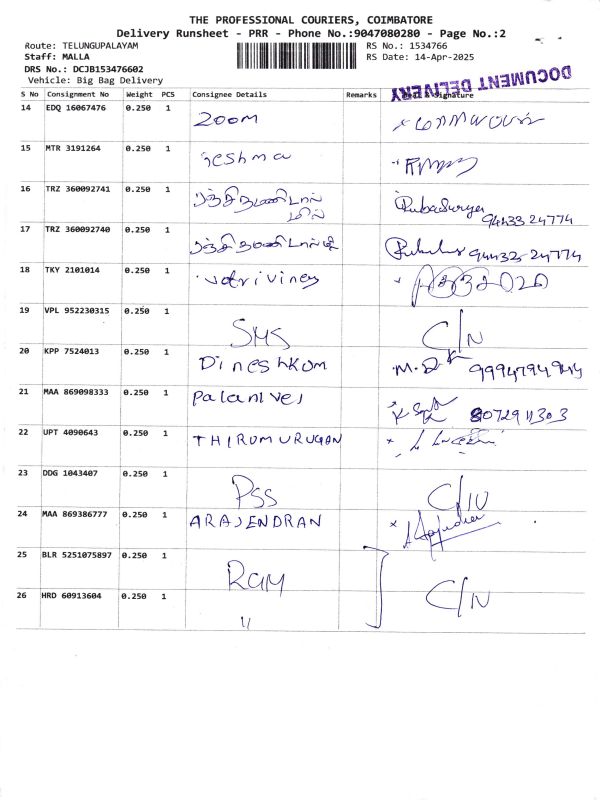 THE PROFESSIONAL COURIERS, COIMBATORE
Delivery Runsheet - PRR - Phone No.:9047080280 - Page No.:2
Route: TELUNGUPALAYAM
RS No.: 1534766
Staff: MALLA
RS Date: 14-Apr-2025
DRS No.: DCJB153476602
Vehicle: Big Bag Delivery
DOCUMENT DELIVERY
S No Consignment No Weight PCS Consignee Details Remarks Seal & Signature
14 EDQ 16067476 0.250 1 Zoom
15 MTR 3191264 0.250 1 reshma
16 TRZ 360092741 0.250 1 94433 24774
17 TRZ 360092740 0.250 1 94433-24774
18 TKY 2101014 0.250 1
19 VPL 952230315 0.250 1 SMS C/N
20 KPP 7524013 0.250 1 Dineshkum M.D
21 MAA 869098333 0.250 1 Palanivel 8072911303
22 UPT 4090643 0.250 1 THIRUMURUGAN
23 DDG 1043407 0.250 1 PSS C/N
24 MAA 869386777 0.250 1 ARAJENDRAN
25 BLR 5251075897 0.250 1 Ram
26 HRD 60913604 0.250 1 " C/N